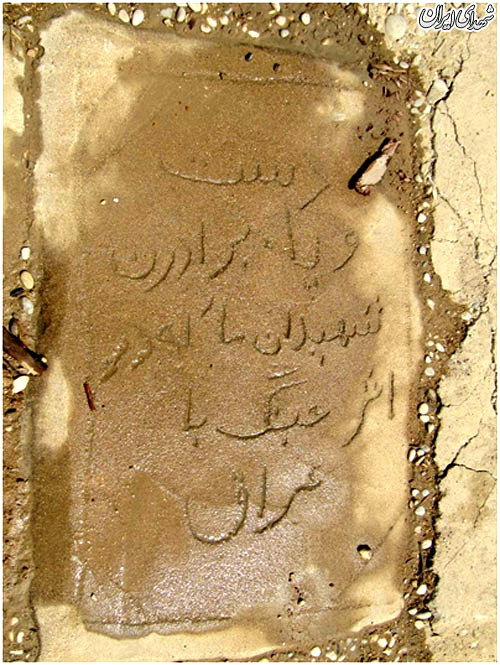 شهدای ایران
دست
و پا، برادرن
شهیدان ما که در
اثر جنگ با
عراق